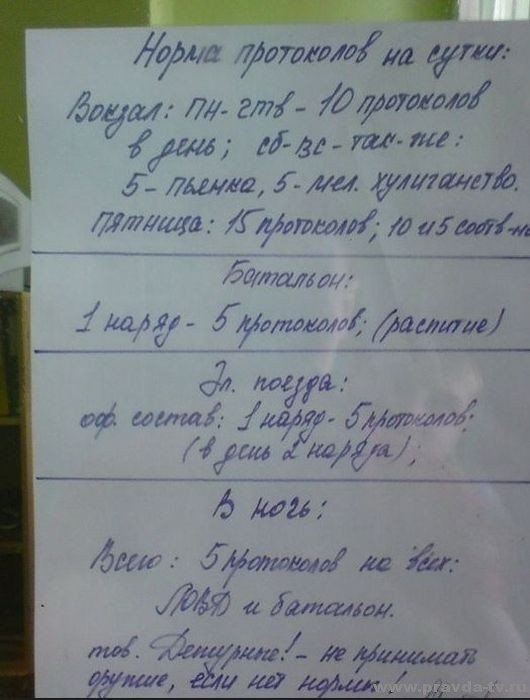 Норма протоколов на сутки:
Вокзал: пн-чтв - 10 протоколов
в день; сб-вс-так-же:
5-пьянка, 5-мел. хулиганство.
пятница: 15 протоколов; 10 и 5 соотв-но
Батальон:
1 наряд - 5 протоколов; (распитие)
Эл. поезда:
оф. состав: 1 наряд - 5 протоколов;
(в день 2 наряда);
В ночь:
Всего: 5 протоколов на всех:
ЛОВД и батальон.
тов. Дежурные! - не принимать
оружие, если нет нормы!
www.pravda-tv.ru